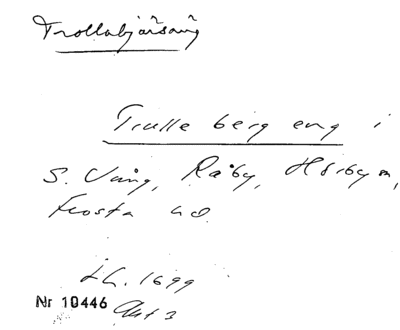 Trollabjärsäng
Trulle berg eng i
S. Vång, Råby, Hörby sn,
Frosta hd.
LG. 1699
Nr 10446 Akt 3